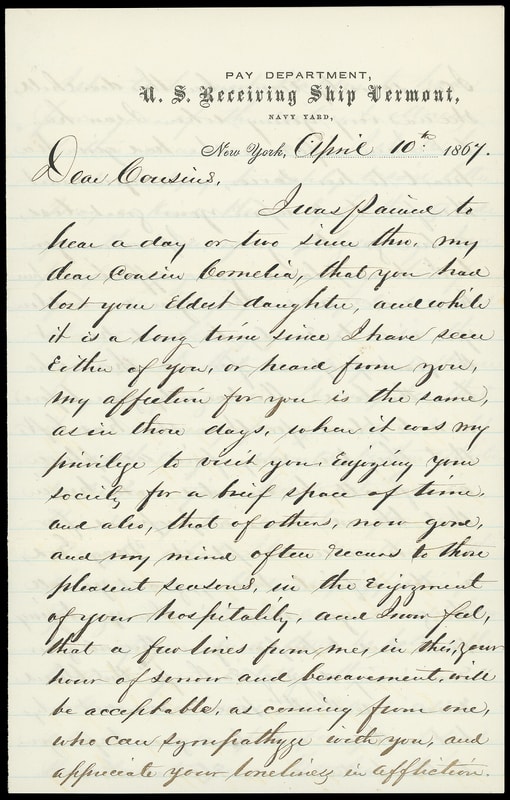 PAY DEPARTMENT,
U. S. Receiving Ship Vermont,
NAVY YARD,
New York, April 10th. 1867.
Dear Cousins,
I was pained to
hear a day or two since thro. my
dear Cousin Cornelia, that you had
lost your Eldest daughter, and while
it is a long time since I have seen
Either of you, or heard from you,
my affection for you is the same,
as in those days, when it was my
privilege to visit you, Enjoying your
society for a brief space of time,
and also, that of others, now gone,
and my mind often recurs to those
pleasent seasons, in the Enjoyment
of your hospitality, and I now feel,
that a few lines from me, in this, your
hour of sorrow and bereavement, will
be acceptable, as coming from one,
who can sympathyze with you, and
appreciate your loneliness in affliction.